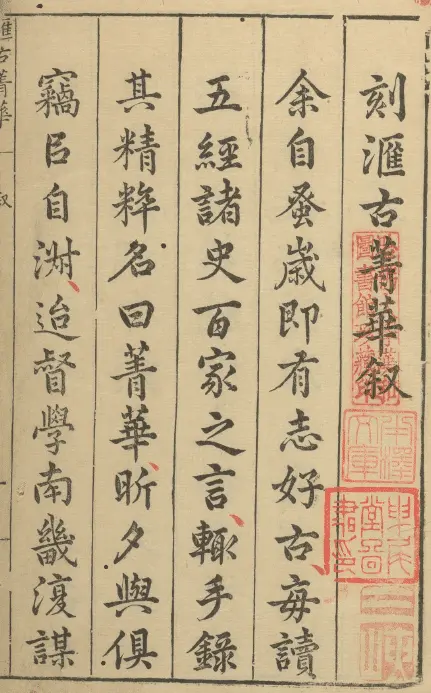 刻滙古菁華叙
余自蚤歳即有志好古、每讀
五經諸史百家之言、輙手錄
其精粹名曰菁華昕夕與俱
竊㠯自淑、迨督學南畿復謀
滙古菁華 叙